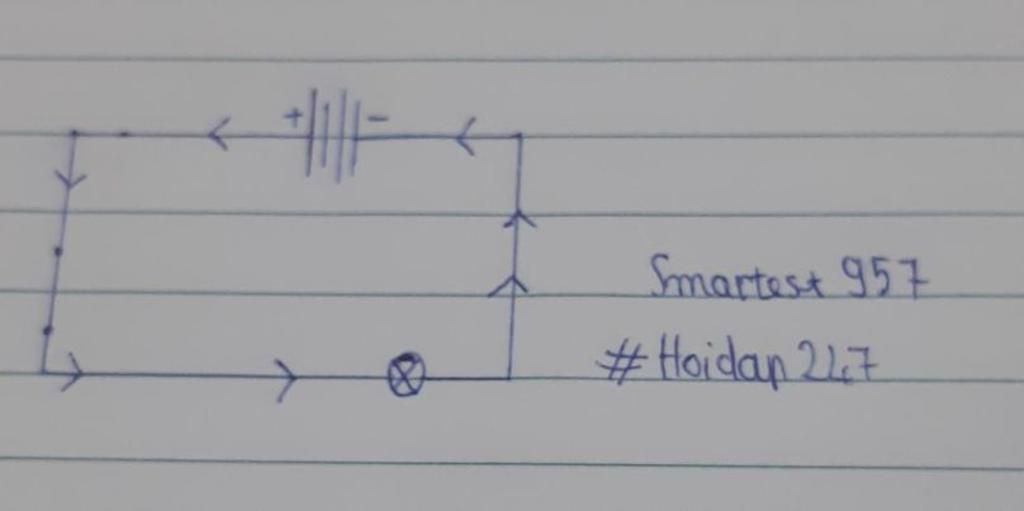 + -
Smartest 957
#Hoidap247